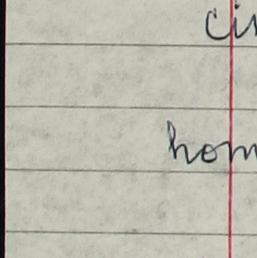 cir
hom